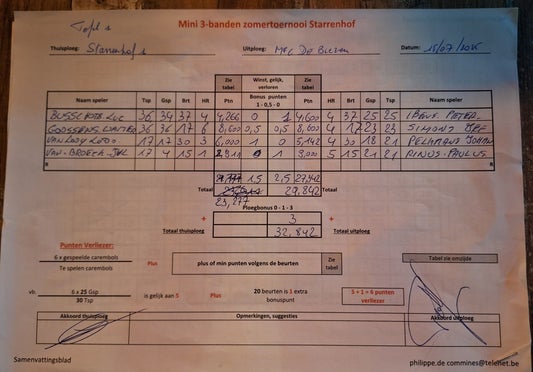 Tafel 1
Mini 3-banden zomertoernooi Starrenhof
Thuisploeg: Starrenhof 1 Uitploeg: Datum: 15/07/2025
Zie tabel Winst, gelijk, verloren Zie tabel
Naam speler Tsp Gsp Brt HR Ptn Bonus punten 1 - 0,5 - 0 Ptn HR Brt Gsp Tsp Naam speler
36 34 37 4 4,266 0 1 4,600 4 37 25 25 PETER
GOOSSENS WALTER 36 36 17 6 8,600 0,5 0,5 8,600 4 17 23 23 SIMONS
VAN LOOY LUDO 17 17 30 3 6,000 1 0 5,142 4 30 18 21 PELKMANS JOHAN
VAN BROECK 17 4 15 1 0 1 3,000 5 15 21 21 PINUS PAULUS
R R
Totaal 1,5 2,5 27,342 Totaal
29,842
23,277
Ploegbonus 0 - 1- 3
+ 3 +
Totaal thuisploeg 32,842 Totaal uitploeg
Punten Verliezer:
6 x gespeelde carembols
Te spelen carembols
Plus plus of min punten volgens de beurten Zie tabel
Tabel zie omzijde
vb. 6 x 25 Gsp
30 Tsp
is gelijk aan 5 Plus 20 beurten is 1 extra bonuspunt 5 + 1 = 6 punten verliezer
Akkoord thuisploeg Opmerkingen, suggesties Akkoord uitploeg
Samenvattingsblad philippe.de commines@telenet.be